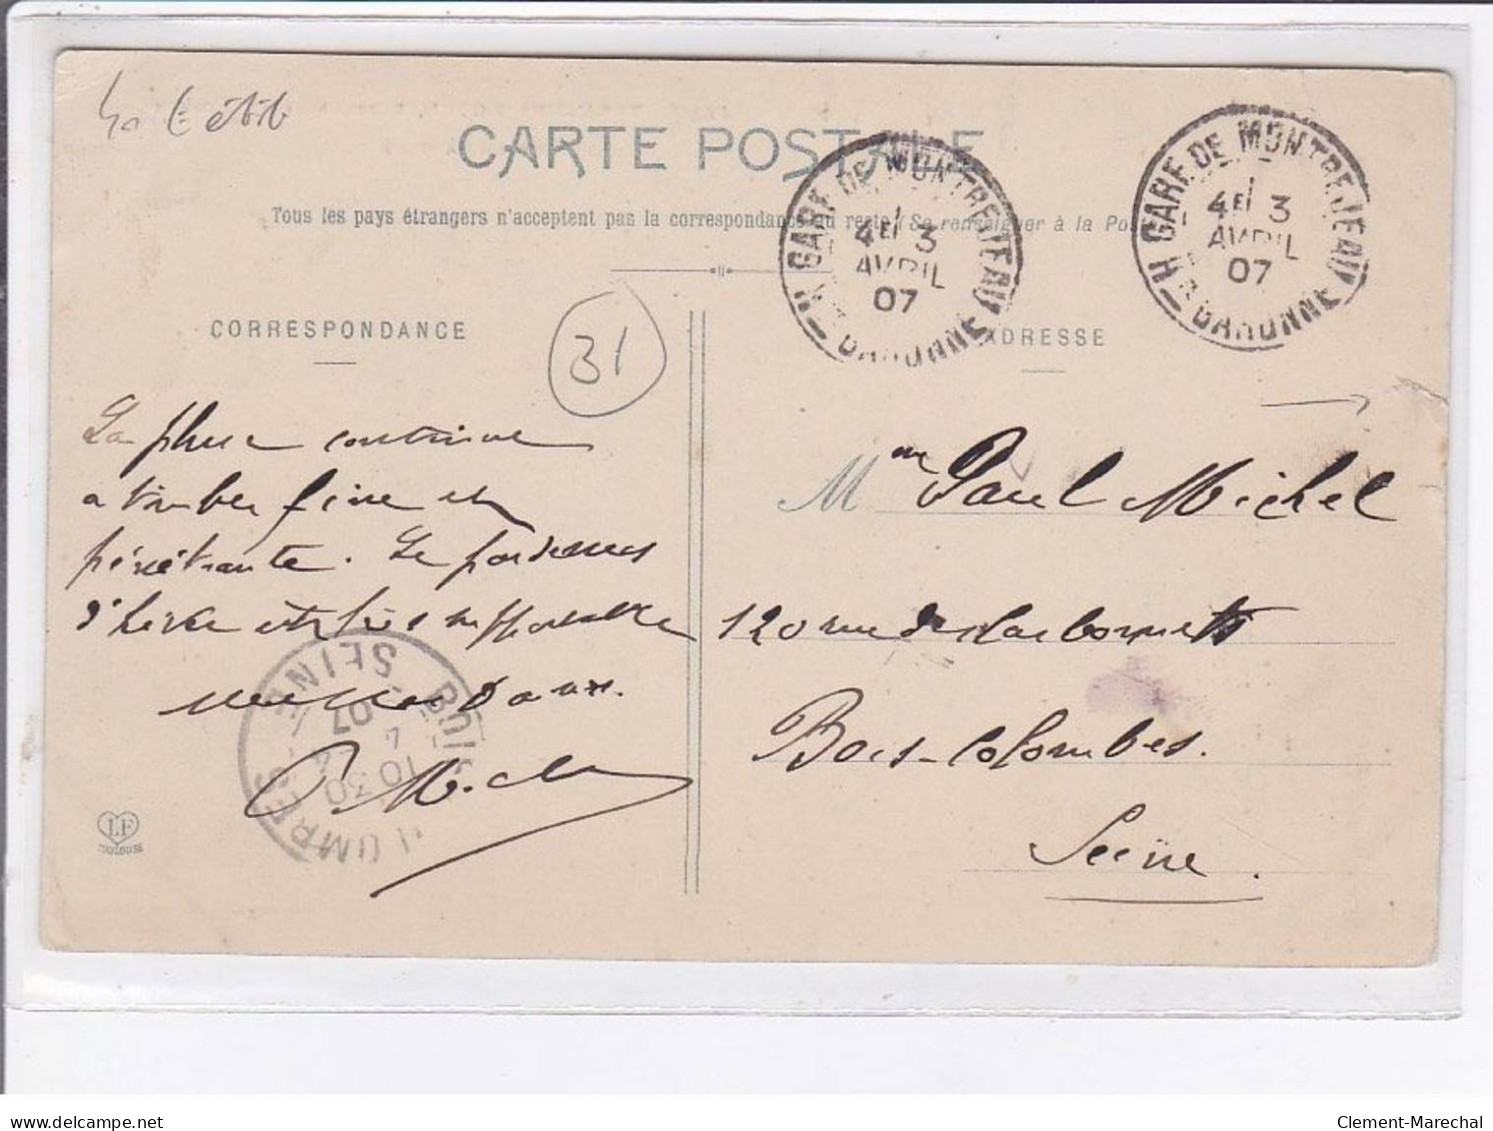 CARTE POSTALE
Tous les pays étrangers n'acceptent pas la correspondance au recto (Se renseigner à la Pos
GARE DE MONTREJEAU
4E 3
AVRIL
07
H GARONNE
GARE DE MONTREJEAU
4E 3
AVRIL
07
H GARONNE
CORRESPONDANCE
31
ADRESSE
La pluie continue
a tomber fine et
pénétrante. Le pardessus
d'hiver est très supportable
M me Paul Michel
120 rue des
Bois-Colombes.
Seine.
BOIS COLOMBES
SEINE
10 30
07
LF
TOULOUSE
Clement-Marechal
delcampe.net